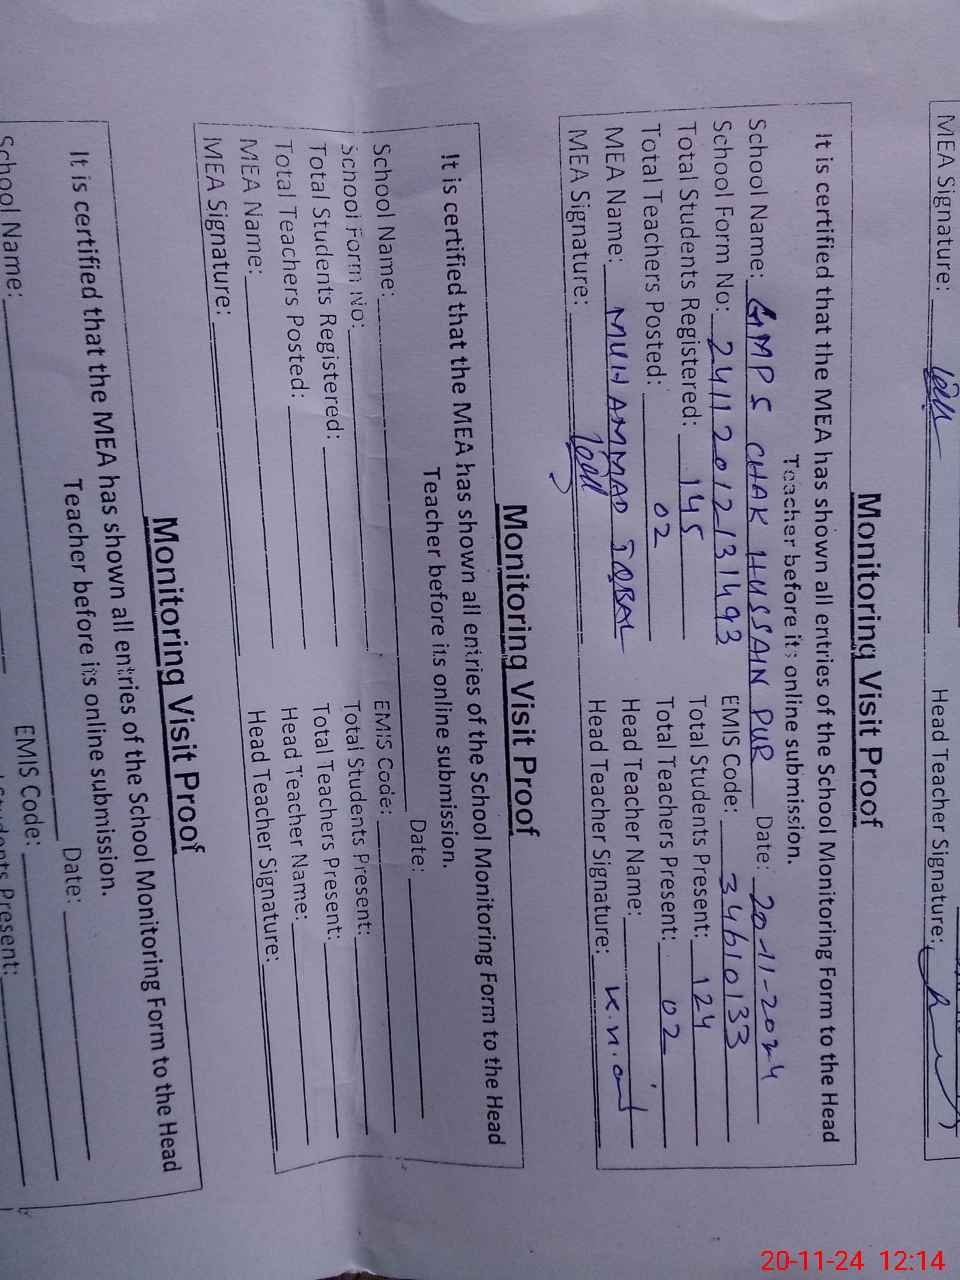 MEA Signature: Head Teacher Signature:
Monitoring Visit Proof
It is certified that the MEA has shown all entries of the School Monitoring Form to the Head
Teacher before its online submission.
School Name: GMPS CHAK HUSSAIN PUR Date: 20-11-2024
School Form No: 24112012131493 EMIS Code: 34610133
Total Students Registered: 145 Total Students Present: 124
Total Teachers Posted: 02 Total Teachers Present: 02
MEA Name: MUHAMMAD IQBAL Head Teacher Name:
MEA Signature: Head Teacher Signature:
Monitoring Visit Proof
It is certified that the MEA has shown all entries of the School Monitoring Form to the Head
Teacher before its online submission.
School Name: Date:
School Form No: EMIS Code:
Total Students Registered: Total Students Present:
Total Teachers Posted: Total Teachers Present:
MEA Name: Head Teacher Name:
MEA Signature: Head Teacher Signature:
Monitoring Visit Proof
It is certified that the MEA has shown all entries of the School Monitoring Form to the Head
Teacher before its online submission.
School Name: Date:
EMIS Code:
Present:
20-11-24 12:14